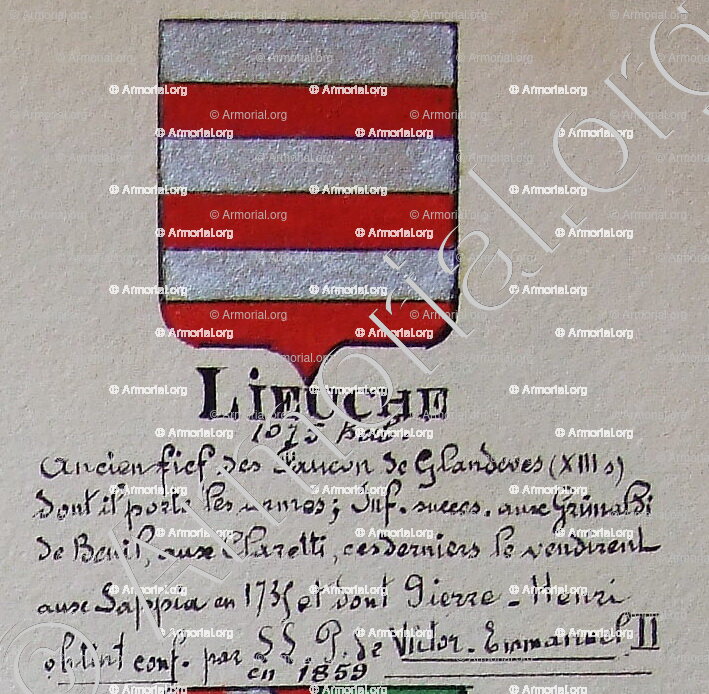 LiEUCHE
Ancien fief des de Glandeves (XIII s)
dont il porte les armes; Inf. succes. aux Grimaldi
de Beuil, aux Claretti, ces derniers le vendirent
aux Sappia en 173 et dont Pierre-Henri
obtint conf. par L.L. P. de Victor-Emmanuel II
en 1859
© Armorial.org